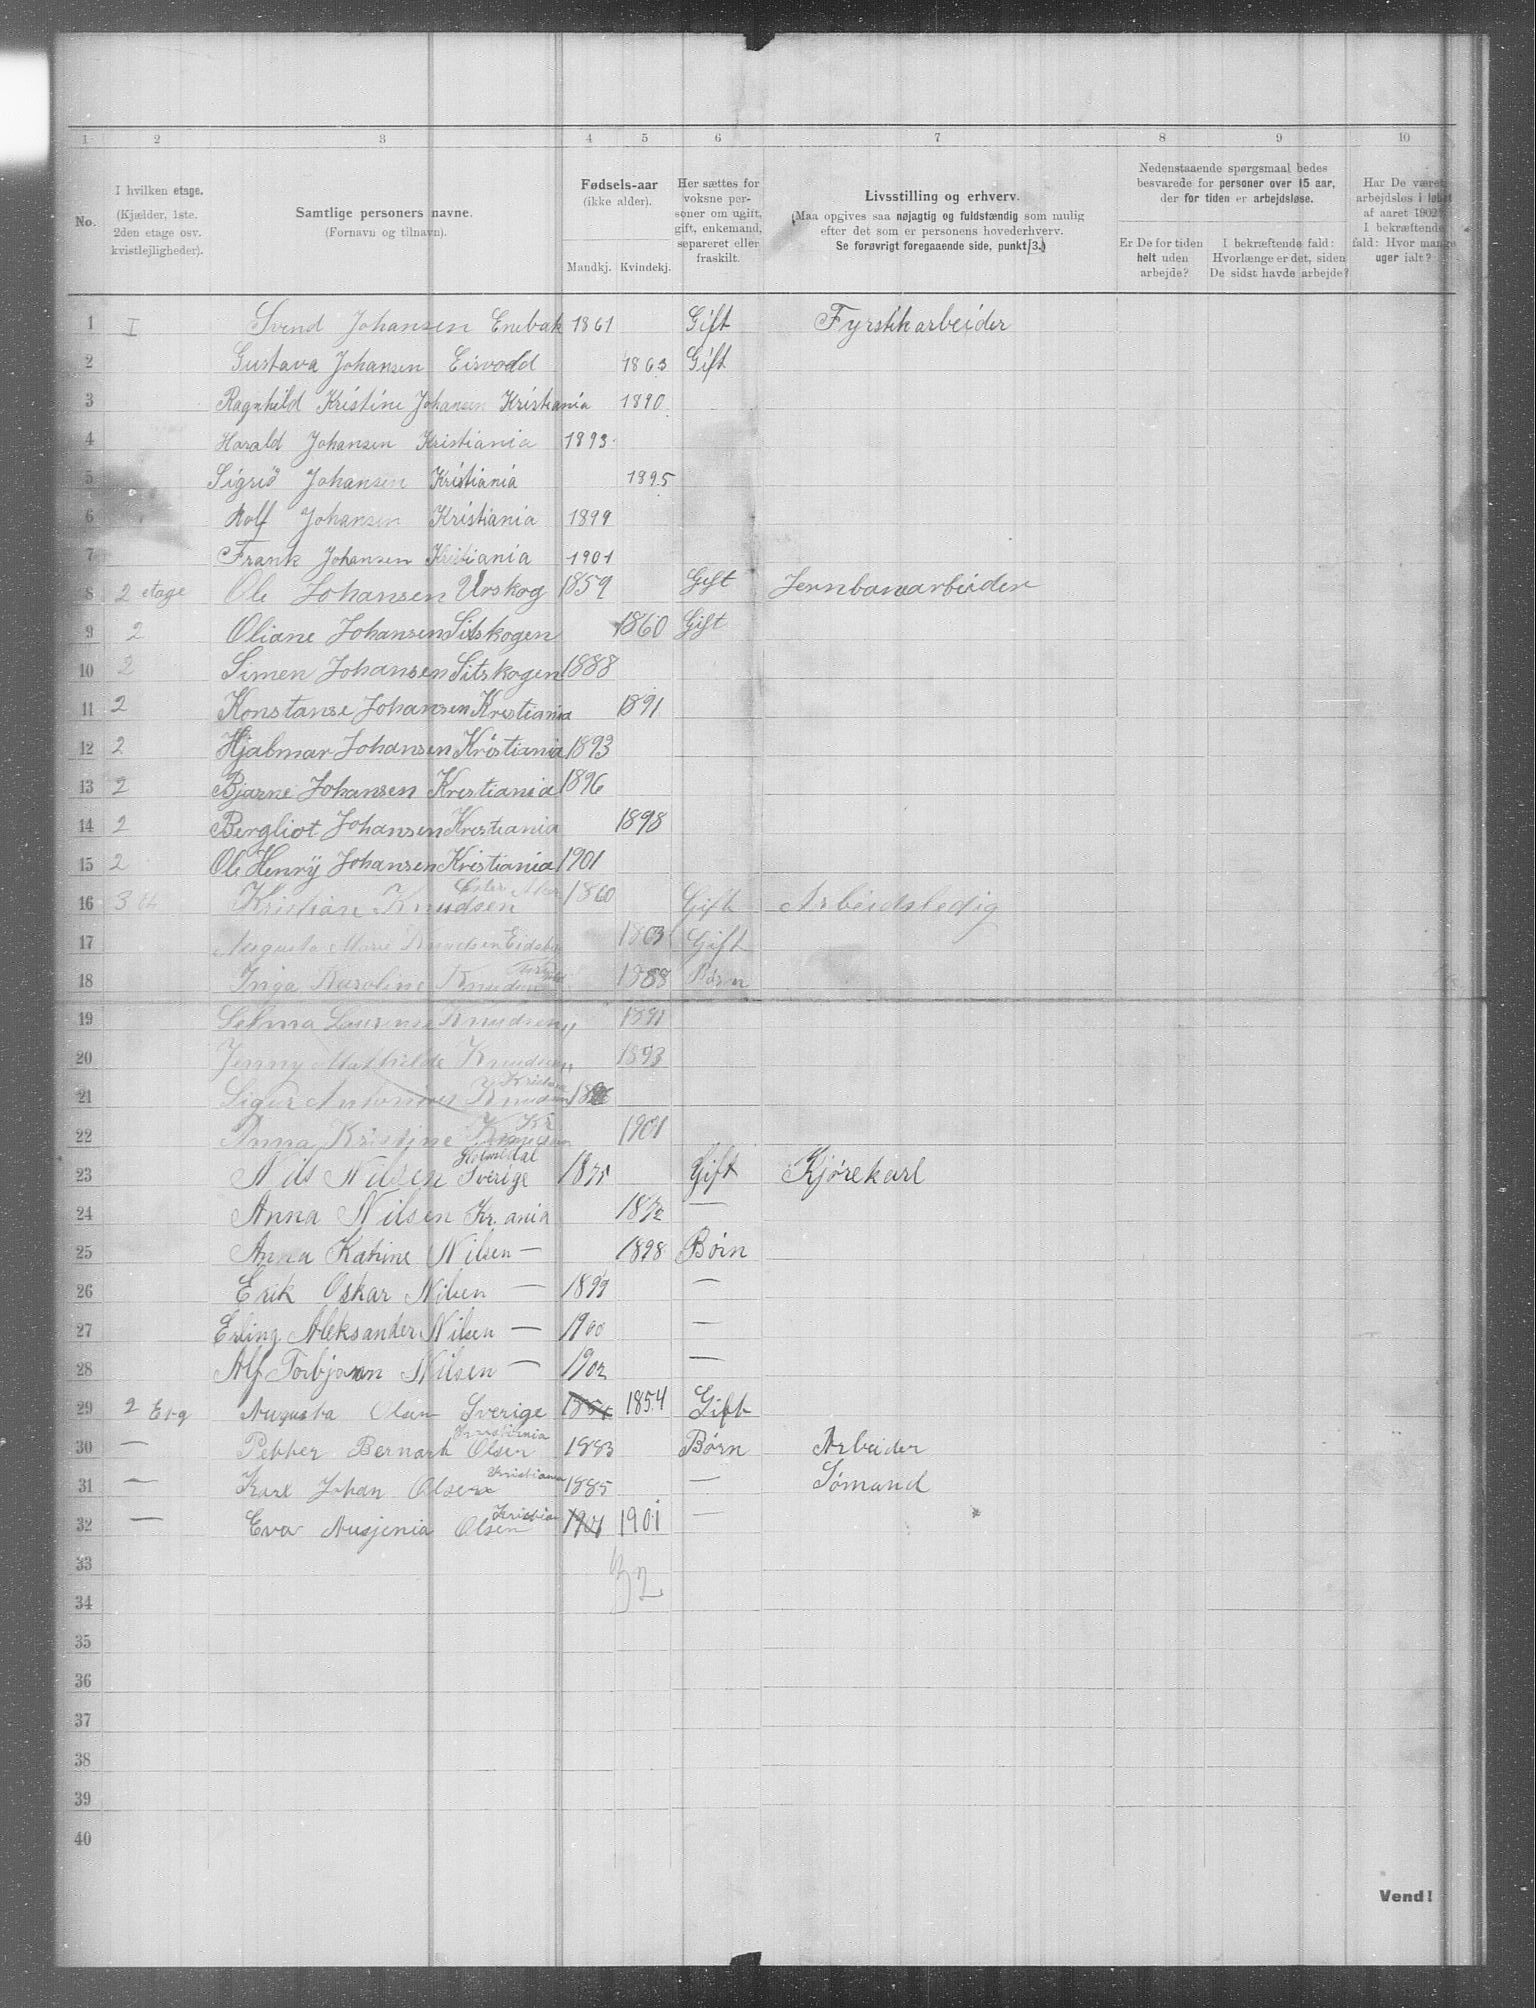 1 2 3 4 5 6 7 8 9 10
No.
I hvilken etage. (Kjælder, 1ste. 2den etage osv. kvistlejligheder).
Samtlige personers navne. (Fornavn og tilnavn).
Fødsels-aar (ikke alder). Mandkj. Kvindekj.
Her sættes for voksne personer om ugift, gift, enkemand, separeret eller fraskilt.
Livsstilling og erhverv. (Maa opgives saa nøjagtig og fuldstændig som mulig efter det som er personens hovederhverv. Se forøvrigt foregaaende side, punkt 3.)
Nedenstaaende spørgsmaal bedes besvarede for personer over 15 aar, der for tiden er arbejdsløse.
Er De for tiden helt uden arbejde?
I bekræftende fald: Hvorlænge er det, siden De sidst havde arbejde?
Har De været arbejdsløs i løbet af aaret 1902? I bekræftende fald: Hvor mange uger ialt?
1 I Svend Johansen Enebak 1861 Gift Fyrstikarbeider
2 Gustava Johansen Eisvodd 1863 Gift
3 Ragnhild Kristine Johansen Kristiania 1890
4 Harald Johansen Kristiania 1893
5 Sigrid Johansen Kristiania 1895
6 Rolf Johansen Kristiania 1899
7 Frank Johansen Kristiania 1901
8 2 etage Ole Johansen Urskog 1859 Gift Jernbanearbeider
9 2 Oliane Johansen Sitskogen 1860 Gift
10 2 Simen Johansen Sitskogen 1888
11 2 Konstanse Johansen Krestiania 1891
12 2 Hjalmar Johansen Kristiania 1893
13 2 Bjarne Johansen Krestiania 1896
14 2 Bergliot Johansen Krestiania 1898
15 2 Ole Henrÿ Johansen Kristiania 1901
16 3 Kristian Knudsen 1860 Gift Arbeidsledig
17 Augusta Marie Knudsen 1863 Gift
18 Inga Karoline Knudsen 1888 Børn
19 Selma Laurense Knudsen " 1891
20 Jenny Mathilde Knudsen " 1893
21 Sigur Antonius Knudsen
22 Anna Kristine Knudsen Kr 1901
23 Nils Nilsen Sverige 1875 Gift Kjørekarl
24 Anna Nilsen Kr. ania —
25 Anna Katrine Nilsen — 1898 Børn
26 Erik Oskar Nilsen — 1899 —
27 Erling Aleksander Nilsen — 1900 —
28 Alf Torbjørn Nilsen — 1902 —
29 2 Etg Augusta Olsen Sverige 1854 1854 Gift
30 — Petter Bernart Olsen Kristiania 1883 Børn Arbeider
31 — Karl Johan Olsen Kristiania 1885 — Sømand
32 — Eva Ausjenia Olsen Kristian 1901 1901 —
33
32
34
35
36
37
38
39
40
Vend!